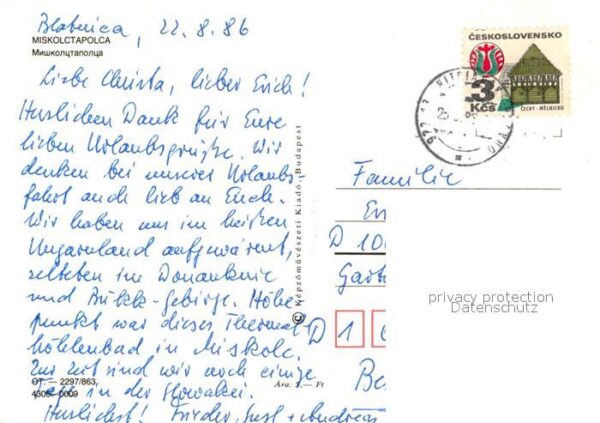 Blatnica, 22.8.86
MISKOLCTAPOLCA
Мишколцтаполца
Liebe Christa, lieber Erich!
Herzlichen Dank für Eure
lieben Urlaubsgrüße. Wir
denken bei unserer Urlaubs-
fahrt auch lieb an Euch.
Wir haben uns im heißen
Ungarnland aufgewärmt,
zelteten im Donauknie
und Bükk-Gebirge. Höhe-
punkt war dieses Thermal
höhlenbad in Miskolc.
Zur Zeit sind wir noch einige
Tage in der Slowakei.
OT. — 2297/863,
4305—0009
Ára: 3.— Ft
Herzlichst! Frieder, Susl + Andreas
© Képzőművészeti Kiadó, Budapest
ČESKOSLOVENSKO
3 Kčs
ČECHY - MĚLNICKO
Familie
D 10
Gart
D 1
Be
privacy protection
Datenschutz